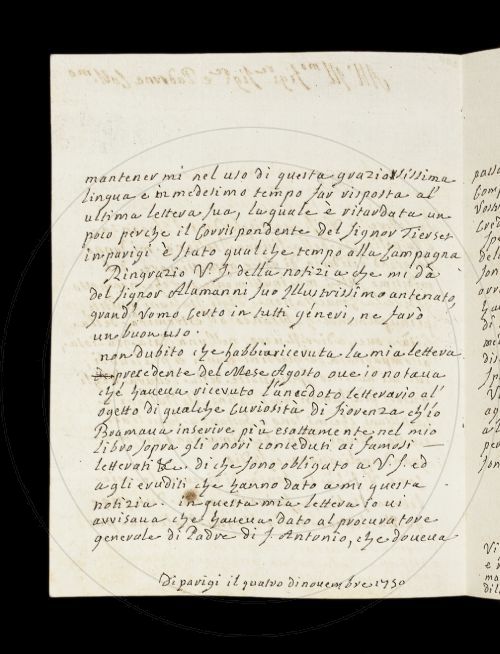 mantener mi nel uso di questa graziosissima
lingua e in medesimo tempo far risposta al'
ultima lettera sua, laquale è ritardata un
poco perche il Corrispondente del signor Tierset
in parigi è stato qualche tempo alla Campagna
Ringrazio V. S. della notizia che mi dà
del signor Alamanni suo Illustrissimo antenato,
grand' Uomo Certo in tutti generi, ne farò
un buon uso.
non dubito che habbia ricevuta la mia lettera
precedente del Mese Agosto oue io notaua
che haueua ricevuto l'anecdoto letterario al'
ogetto di qualche Curiosità di fiorenza ch'io
Bramaua inserire più esattamente nel mio
libro sopra gli onori conceduti ai famosi
letterati &c. di che sono obligato a V. S. ed
a gli eruditi che hanno dato a mi questa
notizia. in questa mia lettera io vi
avvisaua che haueua dato al procuratore
generale di Padre di S. Antonio, che doueua
Di parigi il quatro di nouembre 1750